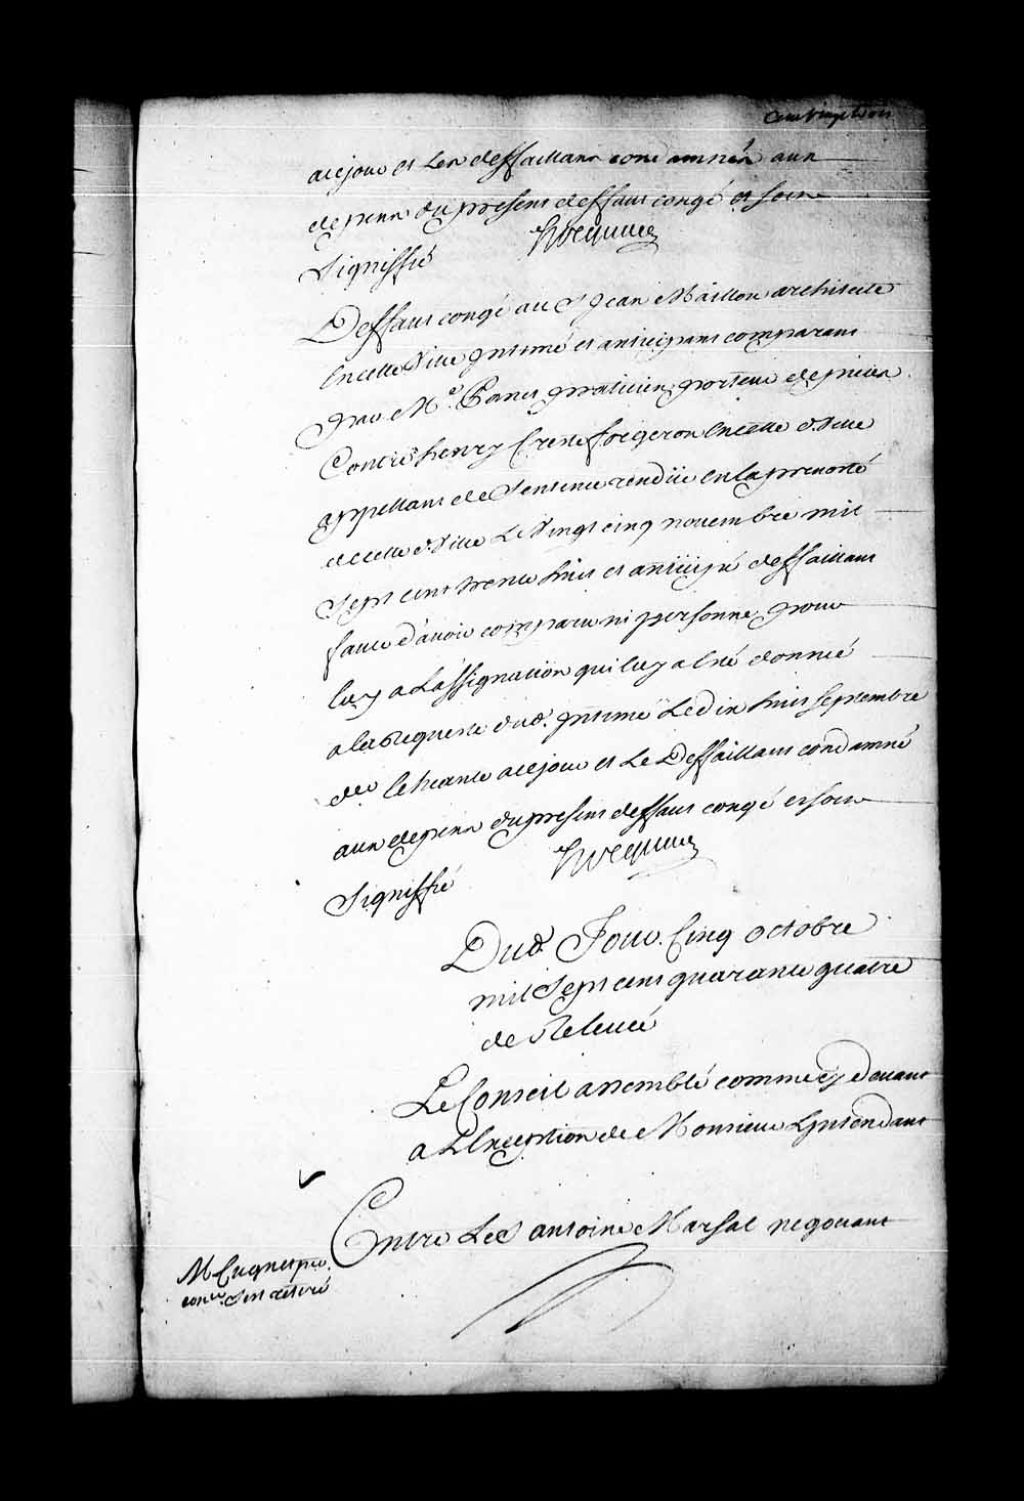 Cent vingt trois
ce jour et les deffaillans condamnés aux
depens du present deffaut congé et soit
Signiffié
Hocquart
Deffaut congé au Sr Jean Maillou architecte
En cette Ville Intimé et anticipant comparant
par Me. Poirier praticien porteur de pieces
Contre henry forgeron En cette d. Ville
appellant de Sentence rendüe En la prevosté
de cette d. Ville Le Vingt cinq novembre mil
Sept cent trente huit et anticipé deffaillant
faute d'avoir comparu ni personne pour
luy a L'assignation qui luy a Eté donnée
a la Requeste dud. Intimé Le dix huit septembre
der. Echeante a ce jour et Le Deffaillant condamné
aux depens du present deffaut congé et soit
Signiffié
Hocquart
Dud. Jour Cinq octobre
mil Sept cent quarante quatre
de Relevée
Le Conseil assemblé comme cy devant
a L'Exception de Monsieur L'Intendant
Entre Le S. antoine Marsal negotiant
M Cugnet pre.
coner. S'est retiré